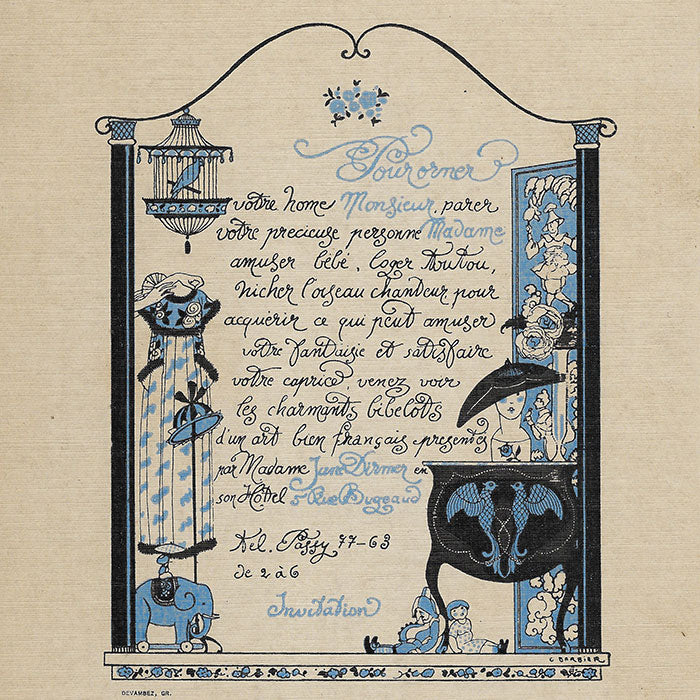 Pour orner
votre home Monsieur, parer
votre precieuse personne Madame
amuser bébé, loger Toutou,
nicher l'oiseau chanteur, pour
acquérir ce qui peut amuser
votre fantaisie et satisfaire
votre caprice, venez voir
les charmants bibelots
d'un art bien français présentés
par Madame Jane Dirmer en
son Hôtel 5 Rue Bugeaud
Tel. Passy 77-63
de 2 à 6
Invitation
G BARBIER
DEVAMBEZ, GR.